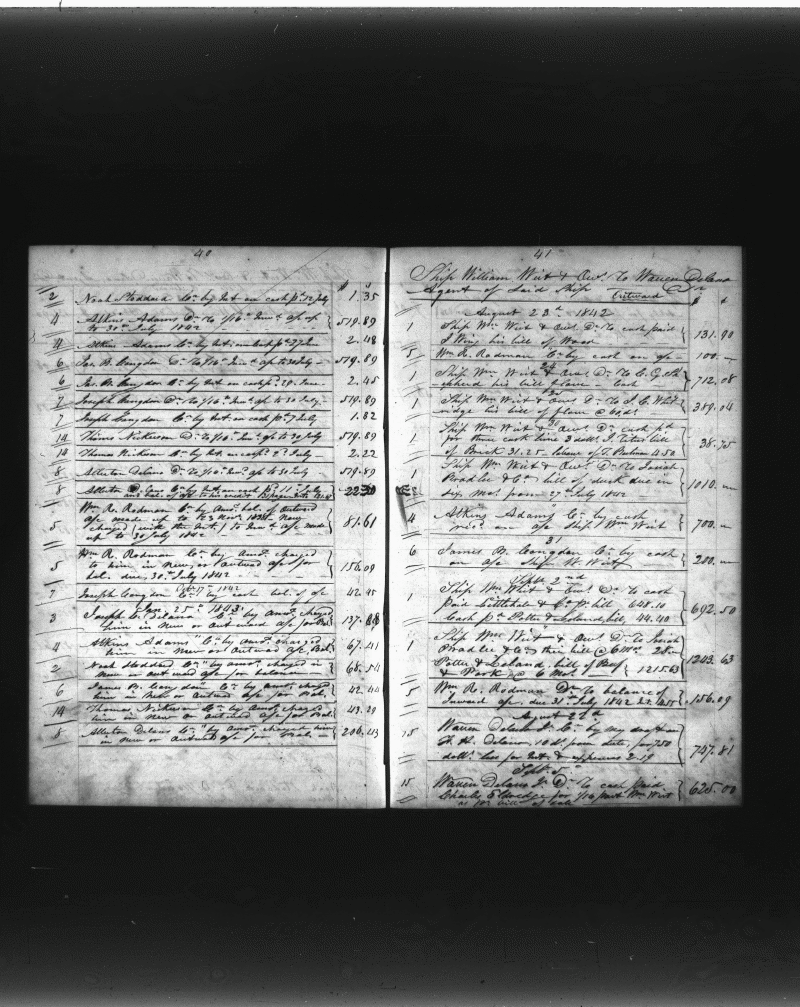 40
$
2 Noah Stoddard Cr. by Int. on cash pd. 12 July 1.35
4 Atkins Adams Dr. to 1/16th Inwd. a/c up
to 30th July 1842 519.89
4 Atkins Adams Cr. by Int. on cash pd. 27 June 2.48
6 Jas. B. Congdon Dr. to 1/16th Inwd. a/c up to 30 July 519.89
6 Jas. B. Congdon Cr. by Int. on cash pd. 29 June 2.45
7 Joseph Congdon Dr. to 1/16th Inwd. a/c up to 30 July 519.89
7 Joseph Congdon Cr. by Int. on cash pd. 7 July 1.82
14 Thomas Nickerson Dr. to 1/16th Inwd. a/c up to 30 July 519.89
14 Thomas Nickerson Cr. by Int. on cash pd. 2d July 2.22
8 Allerton Delano Dr. to 1/16th Inwd. a/c up to 30 July 519.89
8 Allerton Delano Cr. by Int. on cash pd. 11th July
and bal. of to his credit
Wm. R. Rodman Cr. by Amt. bal. of outward
a/c made up to 3 Novr.
5 charged with the Int. to Inwd a/c made 81.61
up to 30 July 1842
Wm. R. Rodman Cr. by Amt. charged
5 to him in new or outward a/c for 156.09
bal. due, 30th July 1842
7 Joseph Congdon Cr. by cash bal. of a/c 42.45
Jan. 25th 1843
3 Joseph C. Delano Cr. by Amt. charged
him in new or outward a/c for Bal.
4 Atkins Adams Cr. by amt. charged
him in new or outward a/c, Bal. 67.41
2 Noah Stoddard Cr. by amt. charged in
new or outward a/c for balance 68.54
6 James B. Congdon Cr. by amt. charged
him in new or outward a/c for Bal. 42.44
14 Thomas Nickerson Cr. by Amt. charged
him in new or outward a/c for Bal. 43.29
8 Allerton Delano Cr. by Amt. charged him
in new or outward a/c for Bal. 206.43
41
Ship William Wirt & Ows. to Warren Delano
Agent of said Ship Outward Dr.
$
August 23d 1842
1 Ship Wm. Wirt & Ows. Dr. to cash paid
J Wing his bill of Wood 131.90
5 Wm. R. Rodman Cr. by cash on a/c 100.—
1 Ship Wm. Wirt & Ows. Dr. to
his bill flour cash 712.08
1 Ship Wm. Wirt & Ows. Dr. to
his bill of flour @ 389.04
30
Ship Wm. Wirt & Ows. Dr. cash pd.
1 for three cash 3 doll. bill 38.75
of Brick 31.25 4.50
Ship Wm. Wirt & Ows. Dr. to Josiah
1 Bradlee & Co. bill of duck due in 1010.—
six mos. from 27th July 1842
4 Atkins Adams Cr. by cash
on a/c ship Wm Wirt 700.—
31
6 James B. Congdon Cr. by cash
on a/c Ship W. Wirt 200.—
Septr. 2nd
1 Ship Wm. Wirt & Ows. Dr. to cash
paid & Co. pr. bill 648.10 692.50
Cash pd. Potter & Leland, bill, 44.40
1 Ship Wm. Wirt & Ows. Dr. to Josiah
Bradlee & Co. their bill @ 6 Mos. 28.— 1243.63
Potter & Leland, bill of Beef 1215.63
& Pork @ 6 Mos.
5 Wm R. Rodman Dr. to balance of
Inward a/c. due 31st July 1842 156.09
August 27th
15 Warren Delano Jr. Cr. by my draft on
F. H. Delano, 10 ds. from date, for 750 747.81
dolls. less for Int. & expenses 2.19
Sept. 5
15 Warren Delano Jr. Dr. to cash paid
Charles Eldredge for 1/16 part Wm Wirt 625.00
as per bill of sale